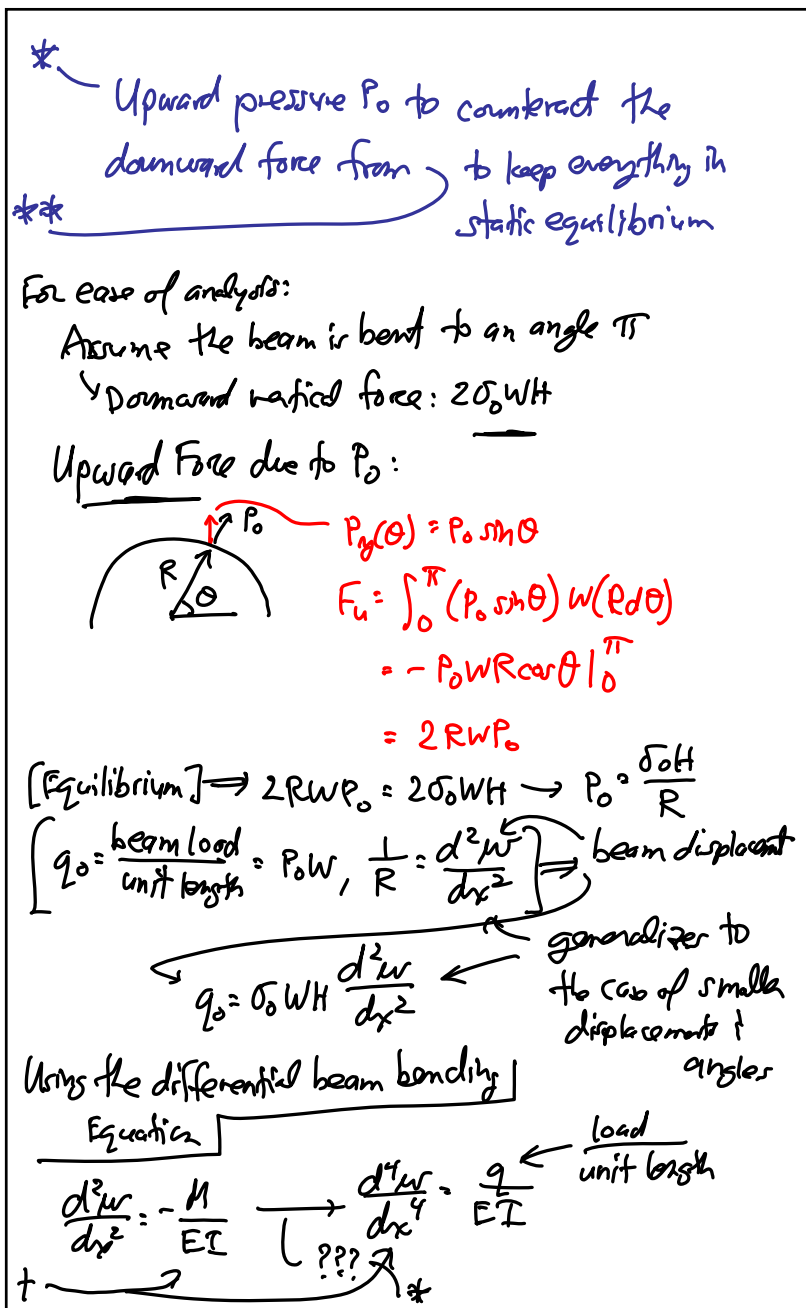 *
Upward pressure P₀ to counteract the
downward force from to keep everything in
** static equilibrium
For ease of analysis:
Assume the beam is bent to an angle π
Downward vertical force: 2σ₀WH
Upward Force due to P₀:
P₀
R
θ
P_y(θ) = P₀ sinθ
F_u = ∫₀^π (P₀ sinθ) W(Rdθ)
= - P₀WRcosθ |₀^π
= 2RWP₀
[Equilibrium] ⇒ 2RWP₀ = 2σ₀WH → P₀ = σ₀H/R
[q₀ = beam load/unit length = P₀W, 1/R = d²w/dx²] ⇒ beam displacement
generalizes to
q₀ = σ₀WH d²w/dx² ← the case of smaller
displacements &
angles
Using the differential beam bending
Equation
d²w/dx² = -M/EI → d⁴w/dx⁴ = q/EI ← load/unit length
???
† *